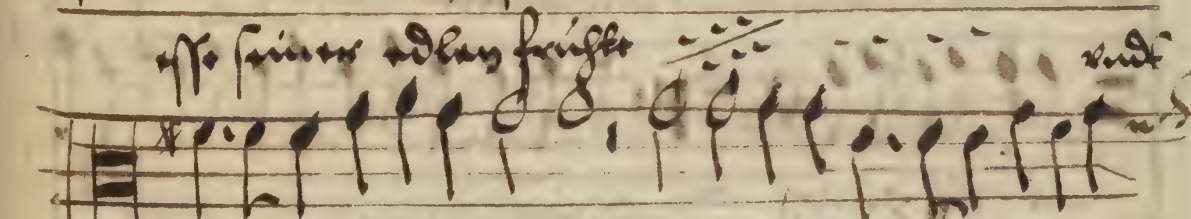 esse seiner edlen früchte vndt